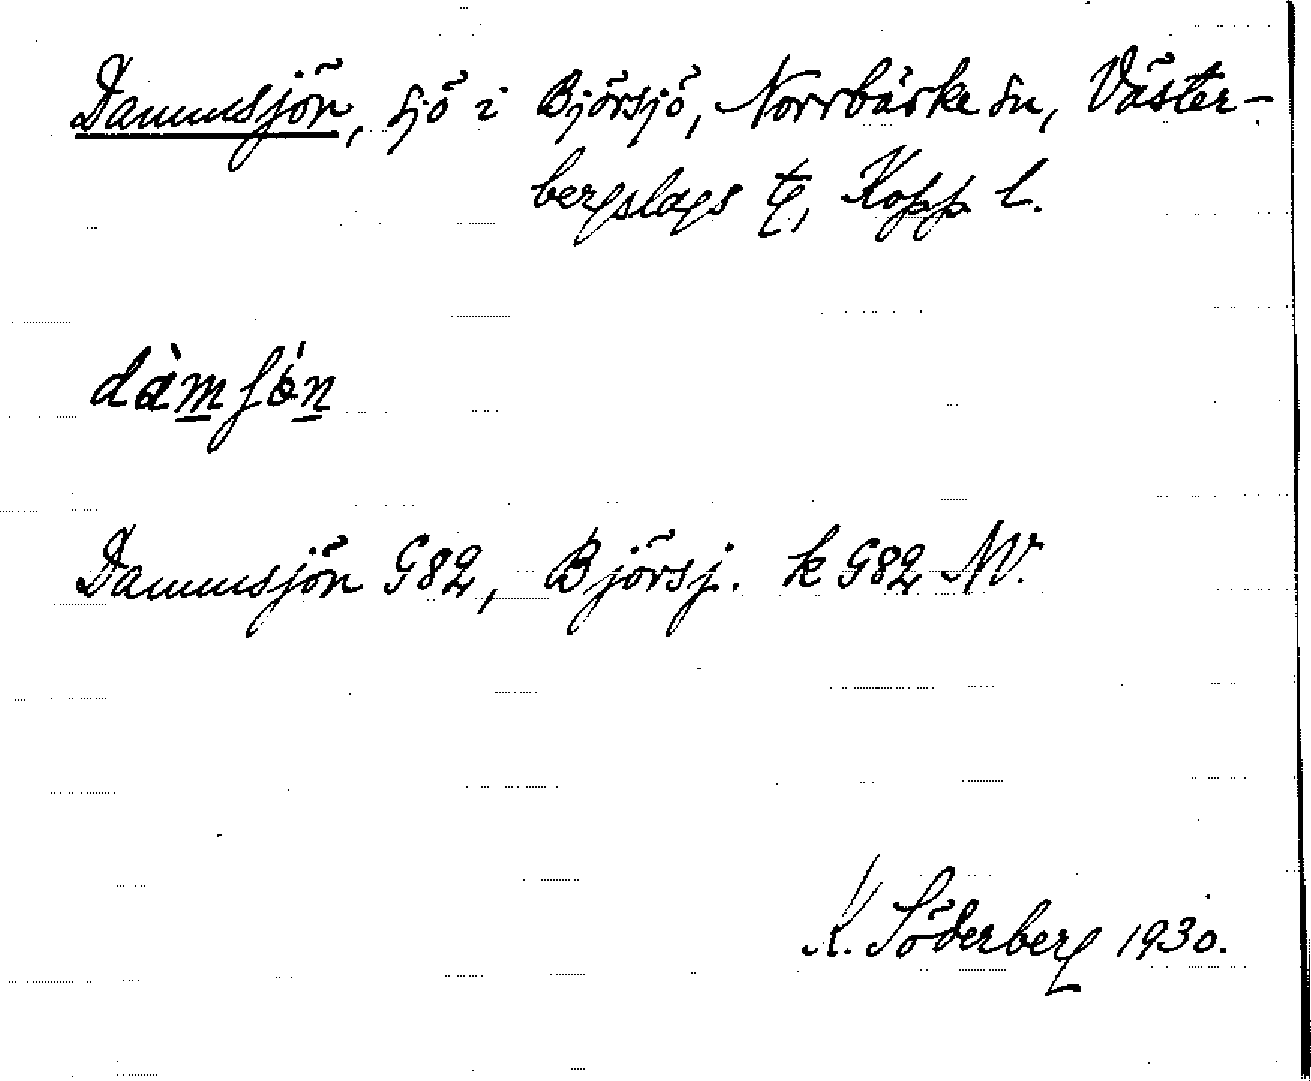 Dammsjön, sjö i Björsjö, Norrbärke sn, Väster-
bergslags tg, Kopp l.
dàmʃǿn
Dammsjön G82, Björsj. k G82 NV.
K. Söderberg 1930.